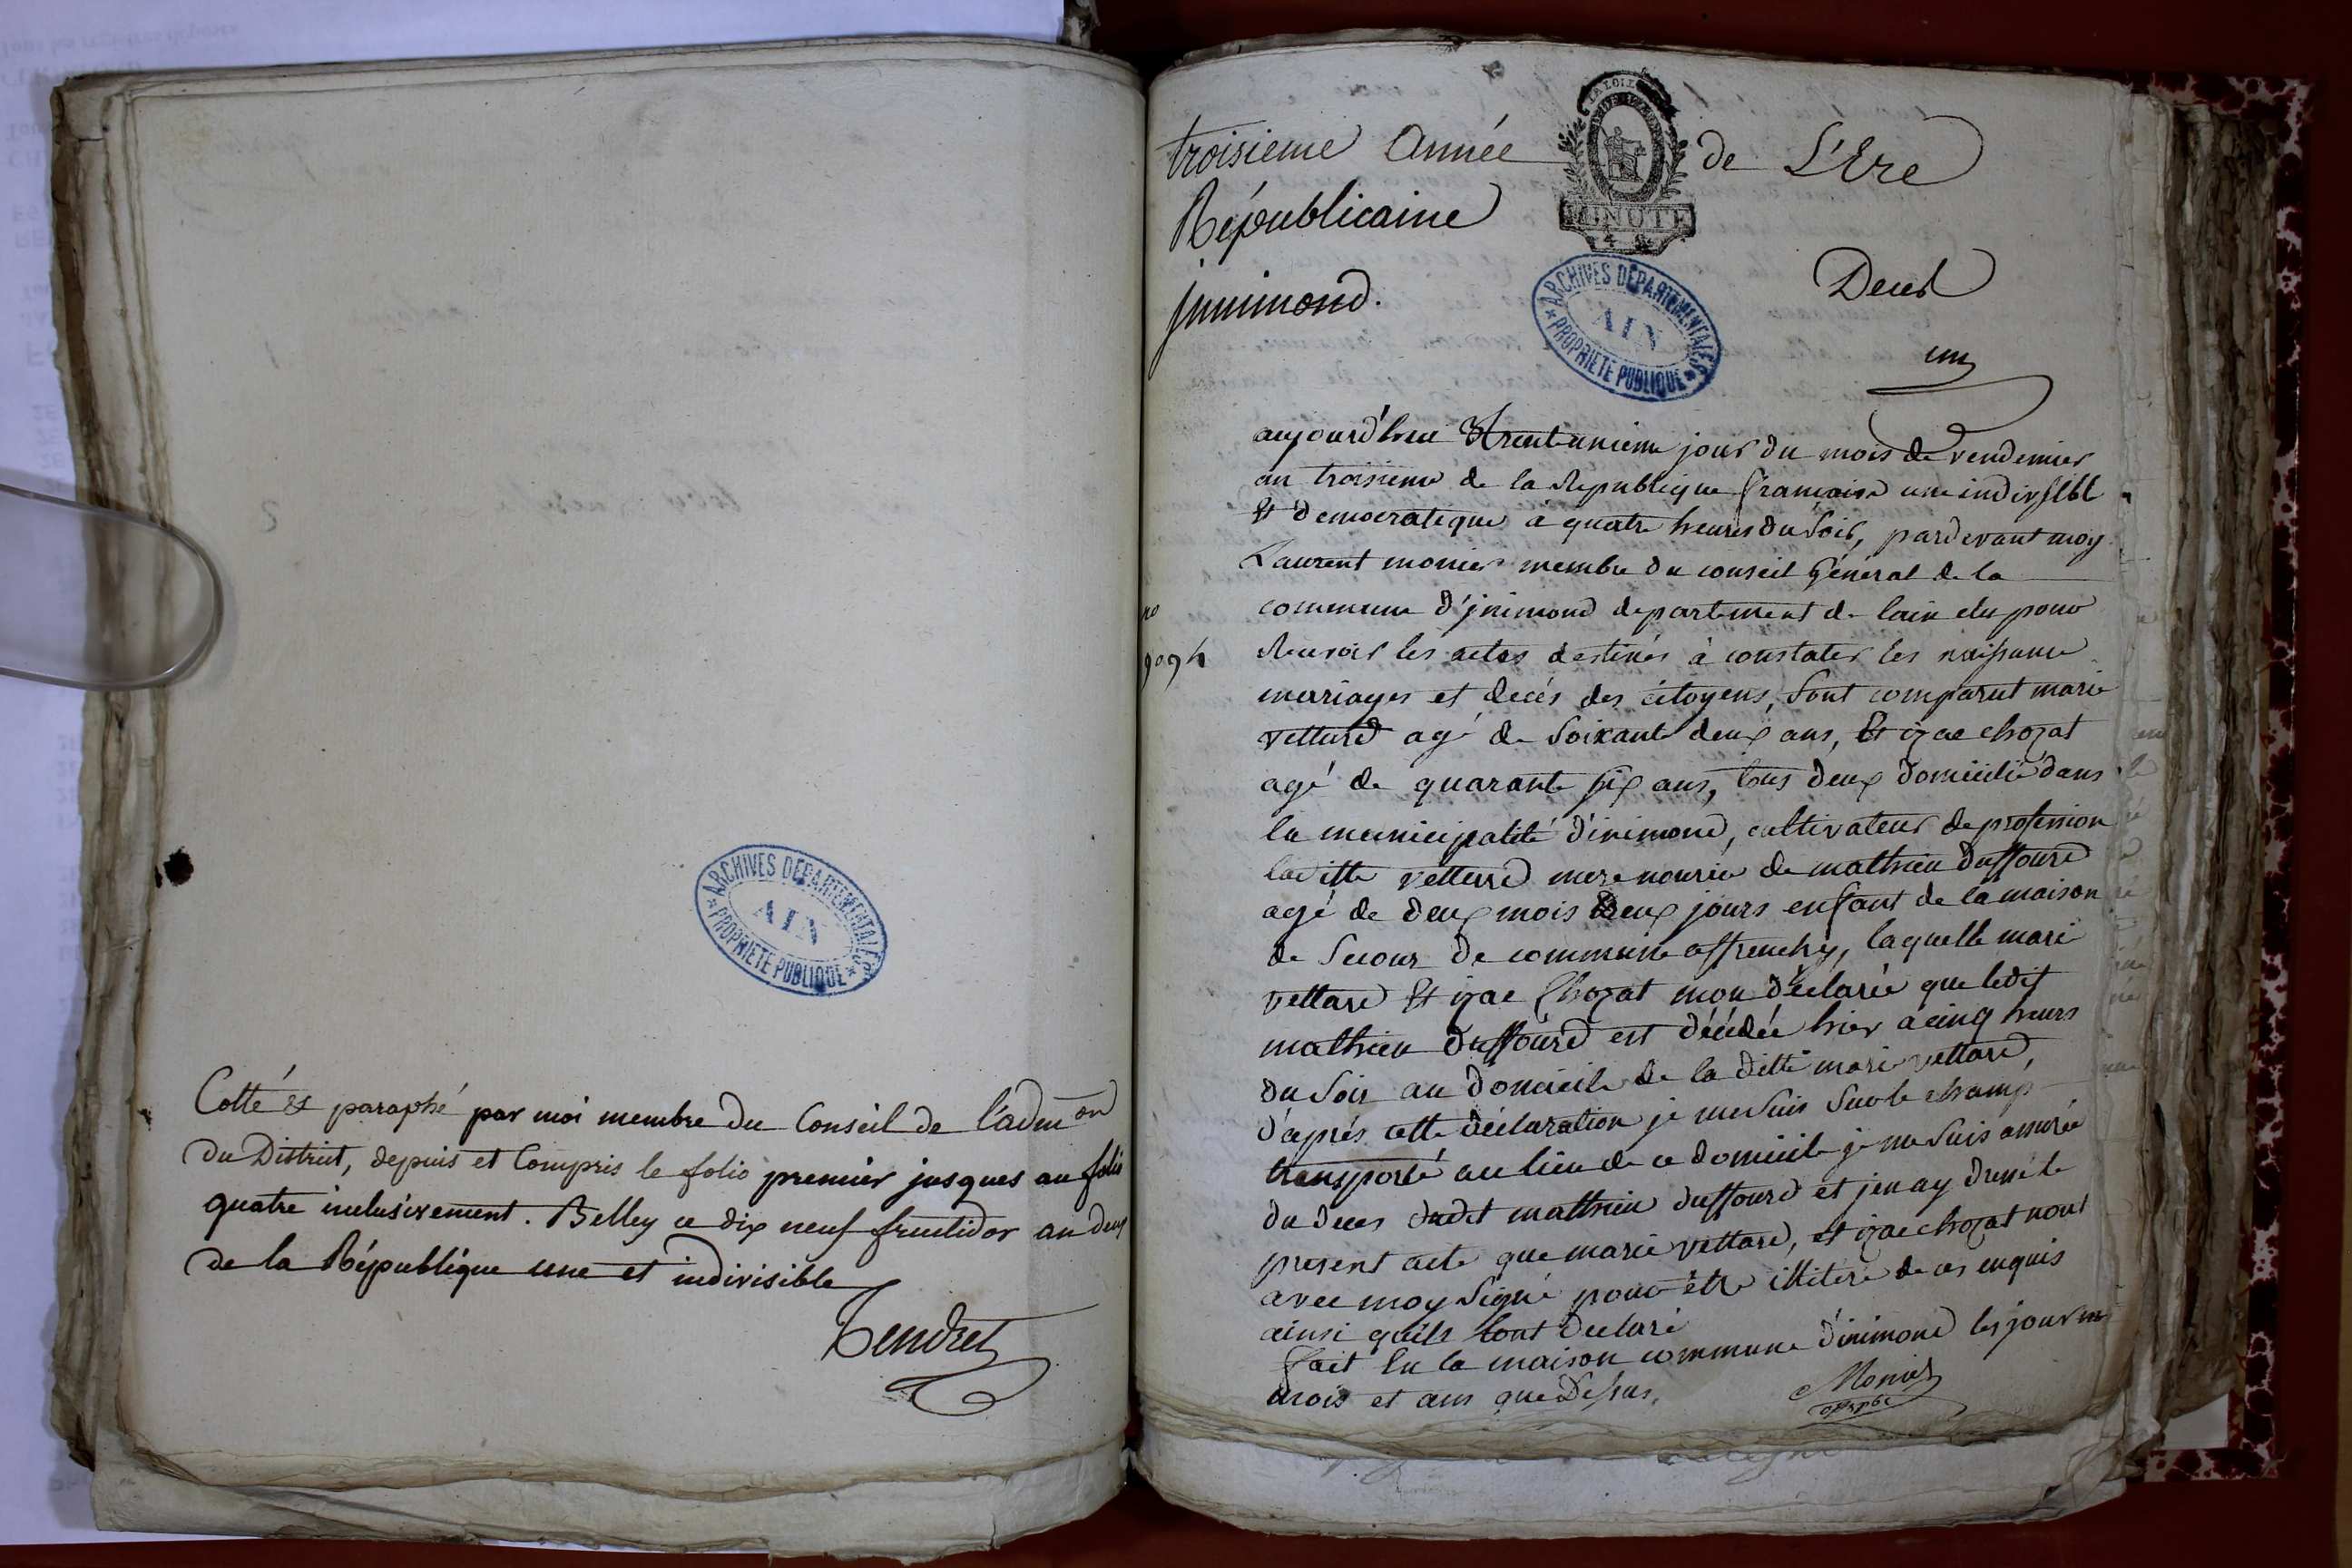 Cotté et paraphé par moi membre du Conseil de l'adm.on
du District, depuis et Compris le folio premier jusques au folio
quatre inclusivement. Belley ce dix neuf fructidor an deux
de la République une et indivisible
Tendret
ARCHIVES DEPARTEMENTALES
AIN
PROPRIETE PUBLIQUE
troisieme Année de L'Ere
Républicaine
jnnimond.
LA LOI
MINUTE
4
ARCHIVES DEPARTEMENTALES
AIN
PROPRIETE PUBLIQUE
Deces
un
aujourd'hui trentunieme jour du mois de vendemier
an troisieme de la Republique francaise une indivisible
Et democratique à quatre heures du soir, pardevant moy
Laurent monier membre du conseil général de la
commune d'jnimond departement de lain elu pour
Recevoir les actes destinés à constater les naissance
marriages et decés des citoyens, sont comparut marie
vettard agé de soixante deux ans, Et izac chozat
agé de quarante six ans, tous deux domicilié dans
la municipalité d'inimond, cultivateur de profession
laditte vettard mere nourice de mathieu duffourd
agé de deux mois deux jours enfant de la maison
de secour de commune affranchy, laquelle marie
vettard Et izac Chozat mon déclaré que ledit
mathieu duffourd est décédée hier à cinq heurs
du soir au domicile de la ditte marie vettard,
d'aprés cette déclaration je me suis sur le champ
transporté au lieu de ce domicile je me suis assurée
du deces dudit mathieu duffourd et jen ay dressé le
present acte que marie vettard, et izac chozat nont
avec moy signé pour être illiteré de ce enquis
ainsi quils lont declaré
fait En la maison commune d'inimond les jour
mois et ans que dessus,
Monier